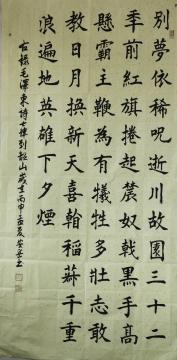 別夢依稀咒逝川故園三十二
秊前紅旗捲起農奴戟黑手高
懸霸主鞭為有犧牲多壯志敢
教日月換新天喜看稻菽千重
浪遍地英雄下夕煙
右錄毛澤東詩七律到韶山歲在丙申孟夏